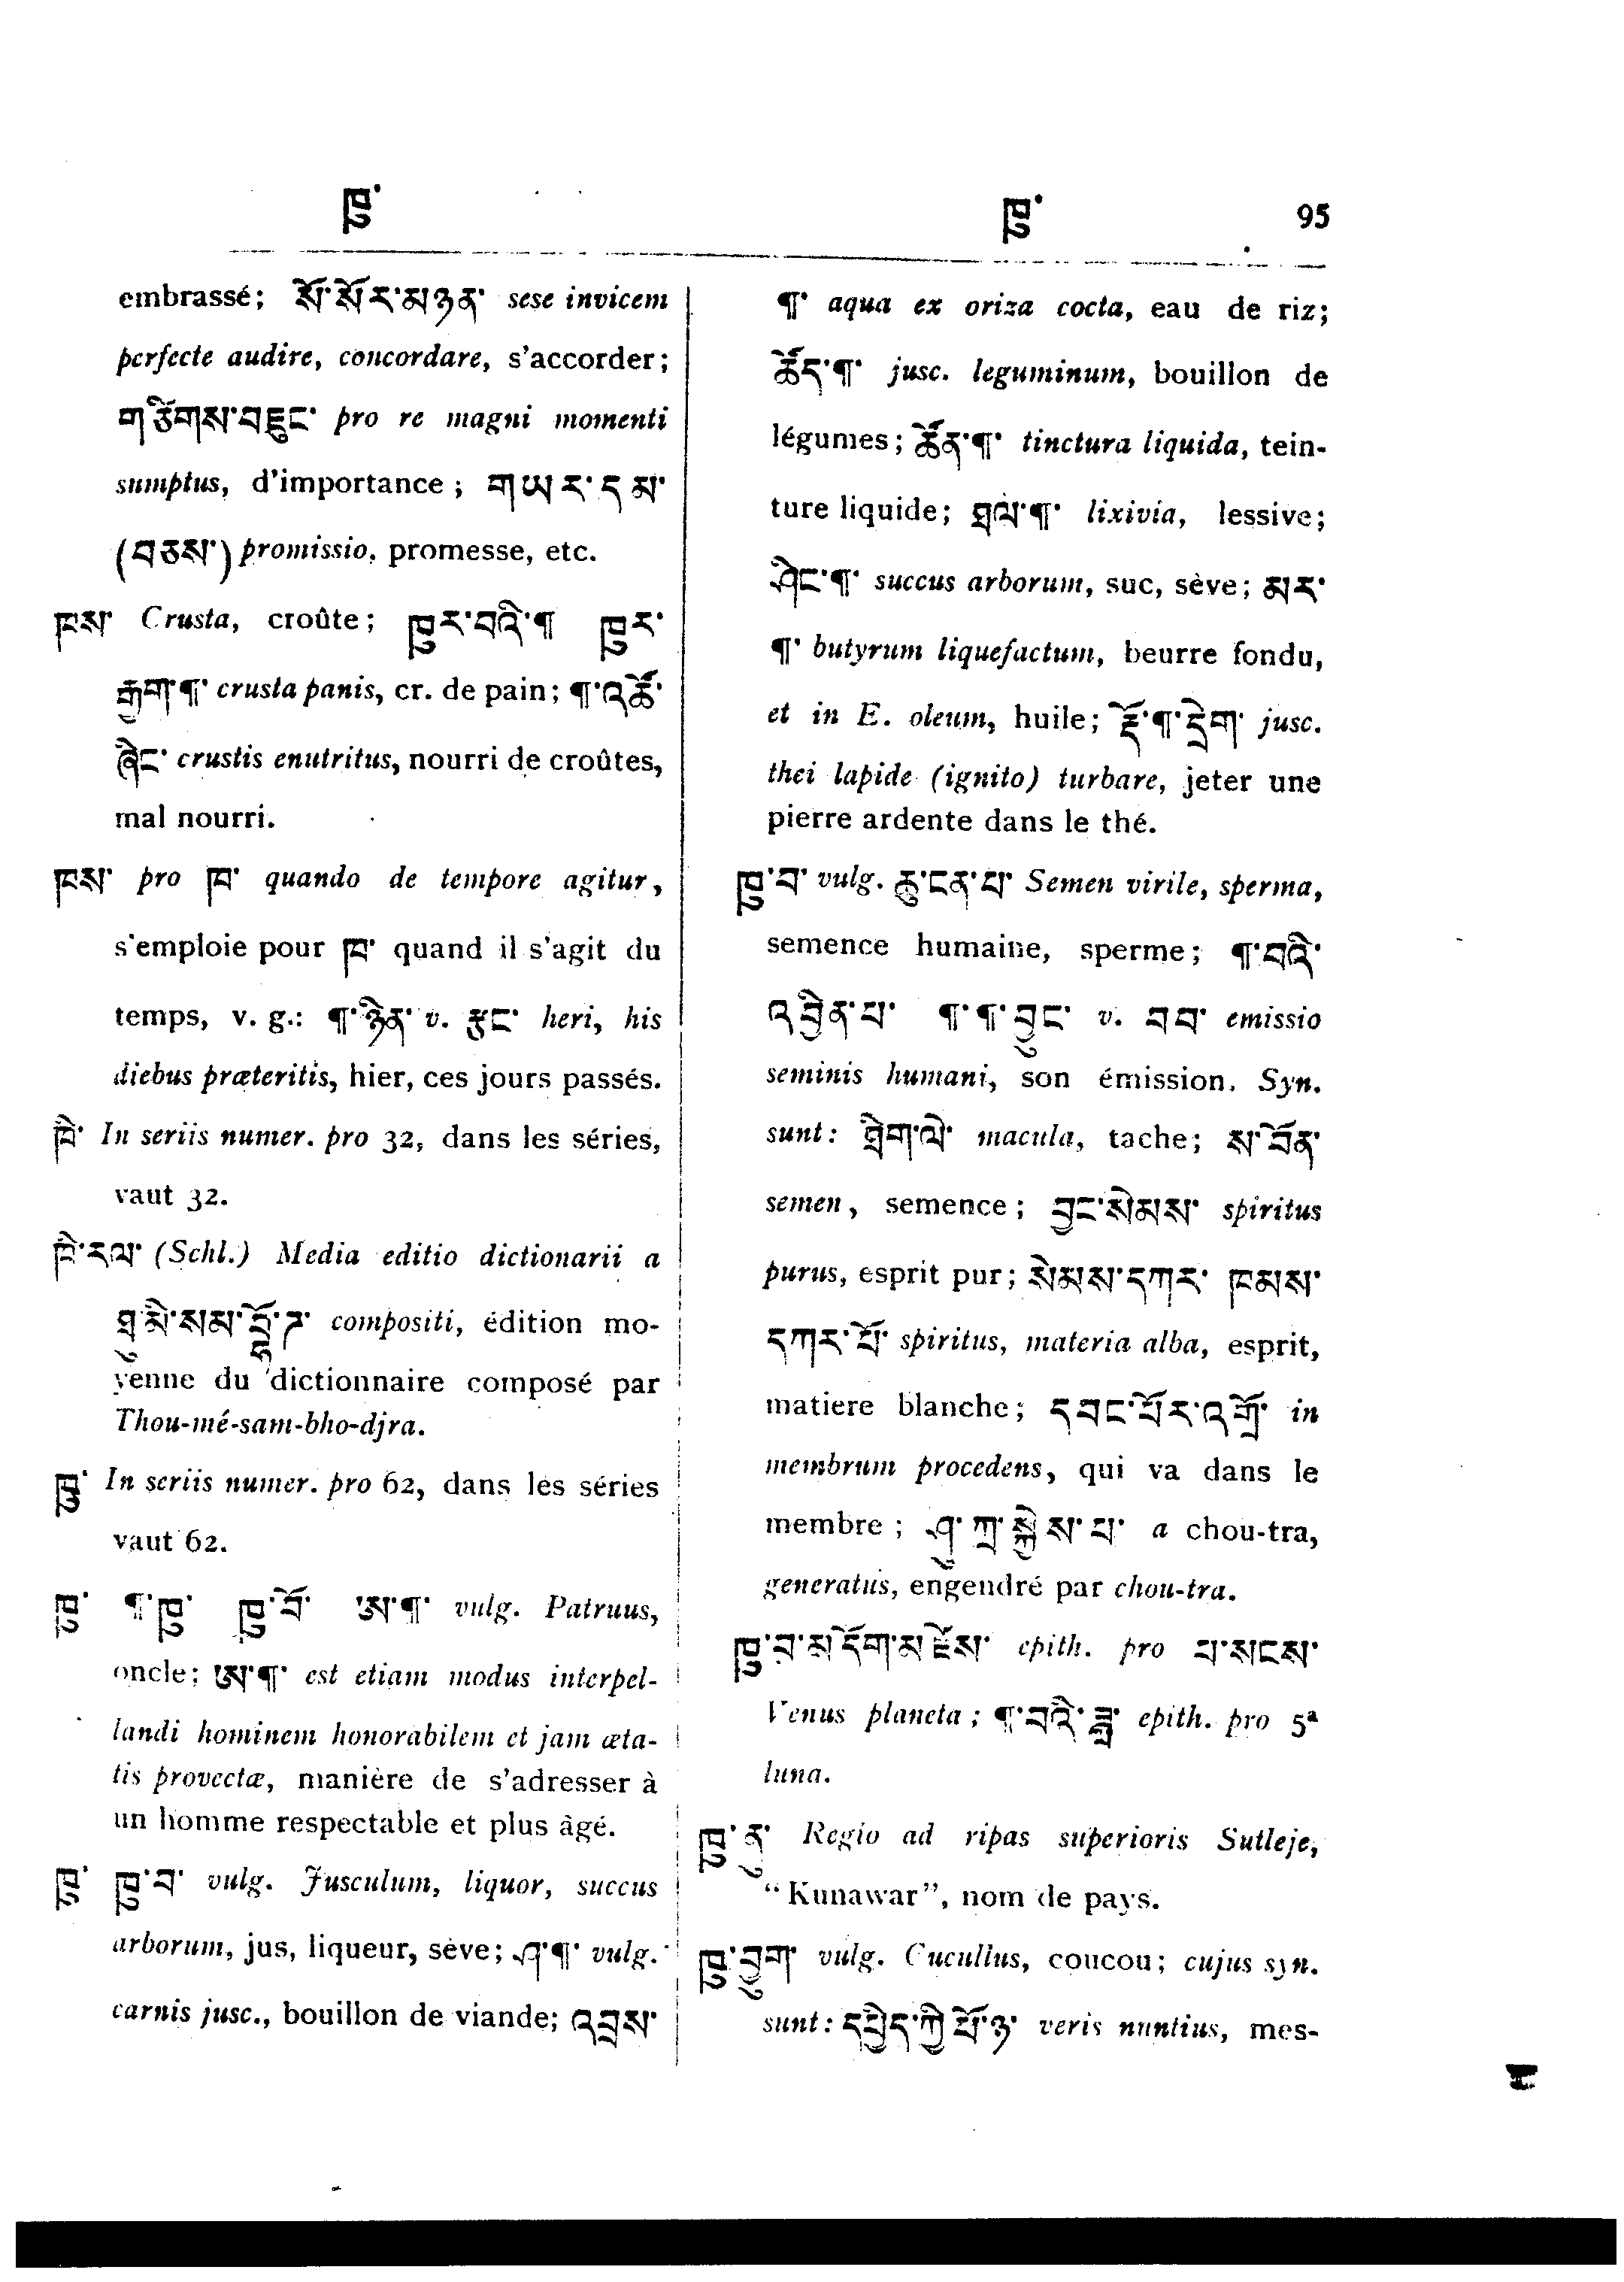 ཁུ་
ཁུ་ 95
embrassé; སོ་སོར་མཉན་ sese invicem
perfecte audire, concordare, s'accorder;
གཙིགས་བཟུང་ pro re magni momenti
sumptus, d'importance; གཡར་དམ་
(བཅས་) promissio, promesse, etc.
ཁས་ Crusta, croûte; ཁུར་བའི་¶ ཁུར་
རྒྱག་¶་ crusta panis, cr. de pain; ¶་འཚོ་
ཞིང་ crustis enutritus, nourri de croûtes,
mal nourri.
ཁས་ pro ཁ་ quando de tempore agitur,
s'emploie pour ཁ་ quand il s'agit du
temps, v. g.: ¶་ཉིན་ v. རྩང་ heri, his
diebus præteritis, hier, ces jours passés.
ཁི་ In seriis numer. pro 32, dans les séries,
vaut 32.
ཁི་རལ་ (Schl.) Media editio dictionarii a
ཐུ་མི་སམ་བྷོ་ཊ་ compositi, édition mo-
yenne du dictionnaire composé par
Thou-mé-sam-bho-djra.
ཁུ་ In seriis numer. pro 62, dans les séries
vaut 62.
ཁུ་ ¶་ཁུ་ ཁུ་བོ་ ཨ་¶་ vulg. Patruus,
oncle; ཨ་¶་ est etiam modus interpel-
landi hominem honorabilem et jam æta-
tis provectæ, manière de s'adresser à
un homme respectable et plus âgé.
ཁུ་ ཁུ་བ་ vulg. Jusculum, liquor, succus
arborum, jus, liqueur, sève; ཤ་¶་ vulg.
carnis jusc., bouillon de viande; འབྲས་
¶་ aqua ex oriza cocta, eau de riz;
ཚོད་¶་ jusc. leguminum, bouillon de
légumes; ཚོན་¶་ tinctura liquida, tein-
ture liquide; ཐལ་¶་ lixivia, lessive;
ཤིང་¶་ succus arborum, suc, sève; མར་
¶་ butyrum liquefactum, beurre fondu,
et in E. oleum, huile; རྡོ་¶་དྲེག་ jusc.
thei lapide (ignito) turbare, jeter une
pierre ardente dans le thé.
ཁུ་བ་ vulg. ཆུ་ངན་པ་ Semen virile, sperma,
semence humaine, sperme; ¶་བའི་
འབྱིན་པ་ ¶་¶་བྱུང་ v. བབ་ emissio
seminis humani, son émission. Syn.
sunt: ཐིག་ལེ་ macula, tache; ས་བོན་
semen, semence; བྱང་སེམས་ spiritus
purus, esprit pur; སེམས་དཀར་ ཁམས་
དཀར་པོ་ spiritus, materia alba, esprit,
matiere blanche; དབང་པོར་འགྲོ་ in
membrum procedens, qui va dans le
membre; ཤུ་ཀྲ་སྐྱེས་པ་ a chou-tra,
generatus, engendré par chou-tra.
ཁུ་བ་མདོག་མཛེས་ epith. pro པ་སངས་
Venus planeta; ¶་བའི་ཟླ་ epith. pro 5ª
luna.
ཁུ་ནུ་ Regio ad ripas superioris Sutleje,
“Kunawar”, nom de pays.
ཁུ་བྱུག་ vulg. Cucullus, coucou; cujus syn.
sunt: དཔྱིད་ཀྱི་ཕོ་ཉ་ veris nuntius, mes-